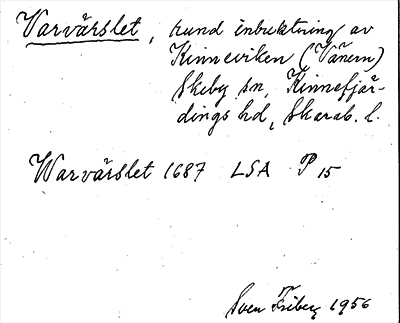 Varvärslet, rund inbuktning av
Kinneviken (Vänern)
Skeby sn, Kinnefjär-
dings hd, Skarab. l.
Warvärslet 1687 LSA P 15
Sven Friberg 1956